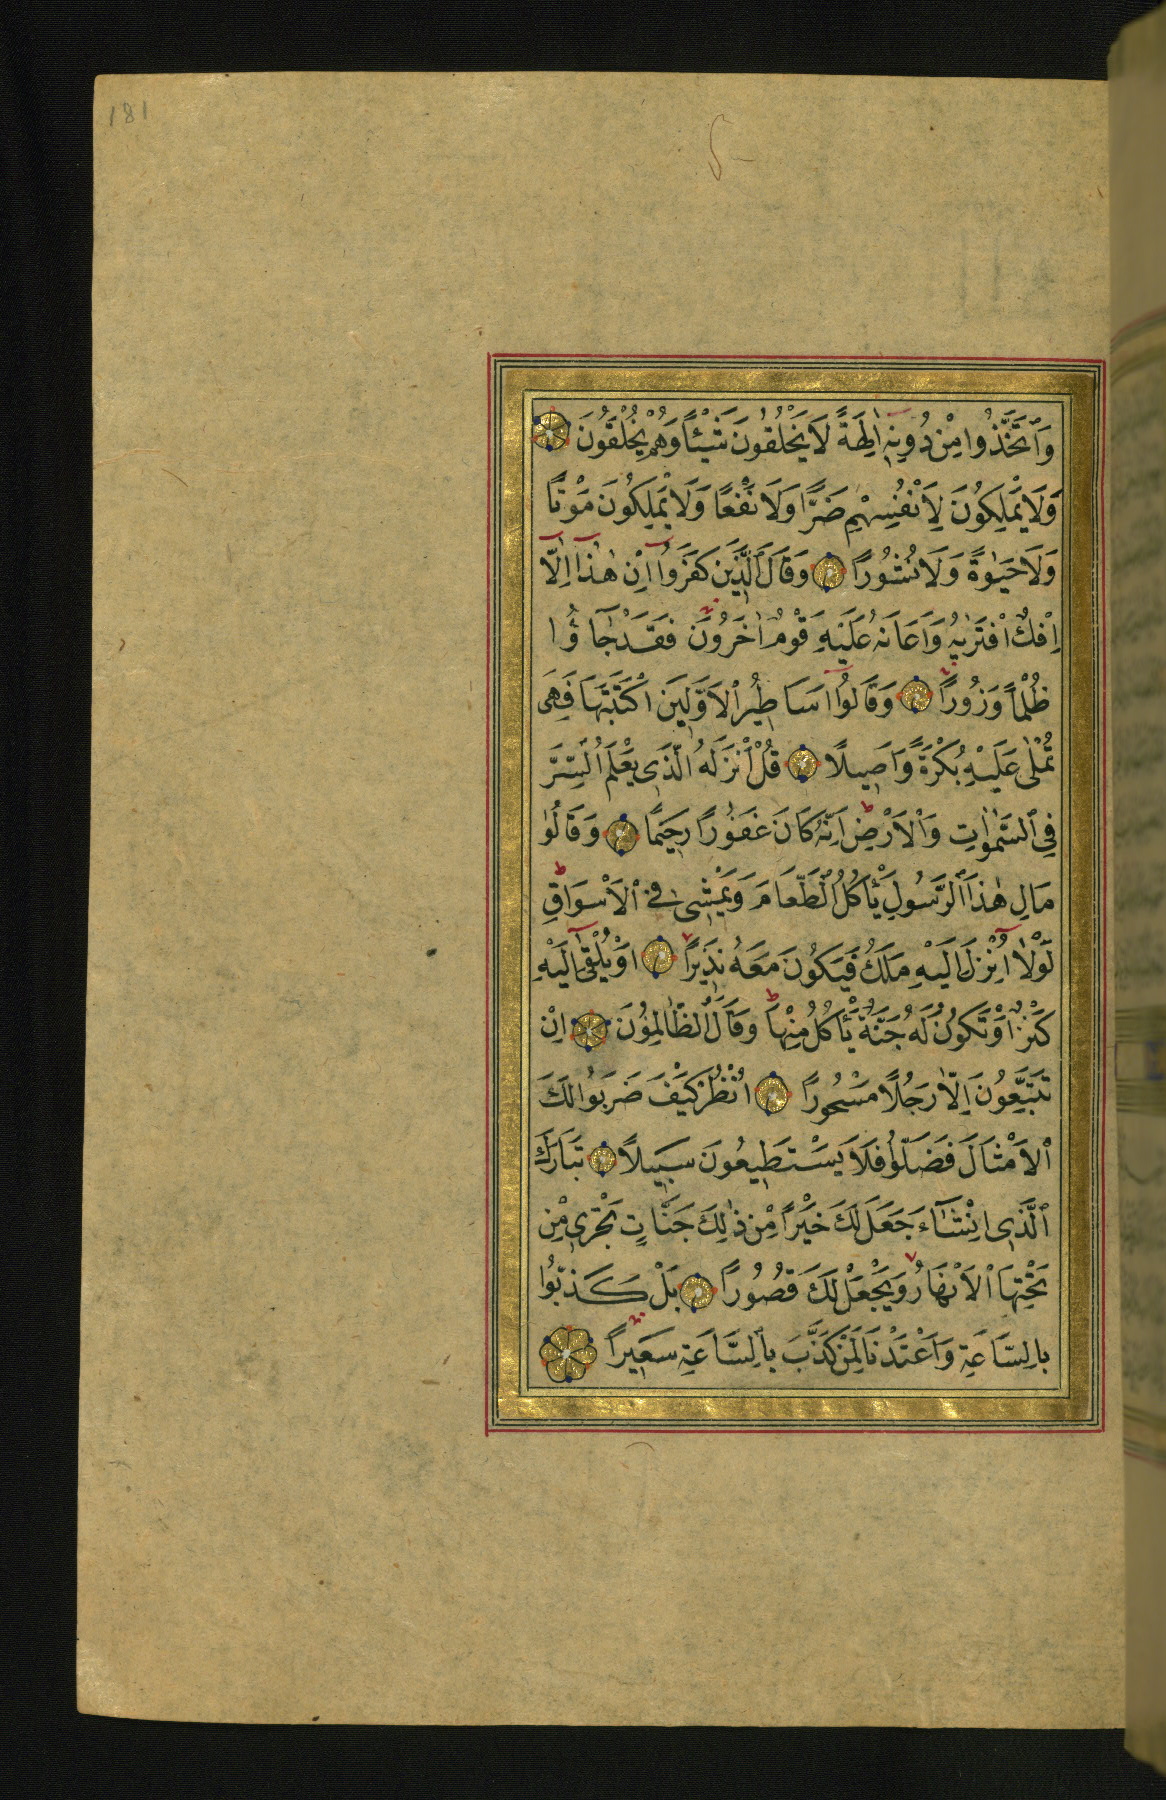 181
وَاتَّخَذُوا مِنْ دُونِهِ اٰلِهَةً لَا يَخْلُقُونَ شَيْئًا وَهُمْ يُخْلَقُونَ
وَلَا يَمْلِكُونَ لِاَنْفُسِهِمْ ضَرًّا وَلَا نَفْعًا وَلَا يَمْلِكُونَ مَوْتًا
وَلَا حَيٰوةً وَلَا نُشُورًا وَقَالَ الَّذِينَ كَفَرُوا اِنْ هٰذَا اِلَّا
اِفْكٌ افْتَرٰيهُ وَاَعَانَهُ عَلَيْهِ قَوْمٌ اٰخَرُونَ فَقَدْ جَاؤُا
ظُلْمًا وَزُورًا وَقَالُوا اَسَاطِيرُ الْاَوَّلِينَ اكْتَتَبَهَا فَهِىَ
تُمْلٰى عَلَيْهِ بُكْرَةً وَاَصِيلًا قُلْ اَنْزَلَهُ الَّذِى يَعْلَمُ السِّرَّ
فِى السَّمٰوَاتِ وَالْاَرْضِ اِنَّهُ كَانَ غَفُورًا رَحِيمًا وَقَالُوا
مَالِ هٰذَا الرَّسُولِ يَأْكُلُ الطَّعَامَ وَيَمْشِى فِى الْاَسْوَاقِ
لَوْلَا اُنْزِلَ اِلَيْهِ مَلَكٌ فَيَكُونَ مَعَهُ نَذِيرًا اَوْ يُلْقٰى اِلَيْهِ
كَنْزٌ اَوْ تَكُونُ لَهُ جَنَّةٌ يَأْكُلُ مِنْهَا وَقَالَ الظَّالِمُونَ اِنْ
تَتَّبِعُونَ اِلَّا رَجُلًا مَسْحُورًا اُنْظُرْ كَيْفَ ضَرَبُوا لَكَ
الْاَمْثَالَ فَضَلُّوا فَلَا يَسْتَطِيعُونَ سَبِيلًا تَبَارَكَ
الَّذِى اِنْ شَاءَ جَعَلَ لَكَ خَيْرًا مِنْ ذٰلِكَ جَنَّاتٍ تَجْرِى مِنْ
تَحْتِهَا الْاَنْهَارُ وَيَجْعَلْ لَكَ قُصُورًا بَلْ كَذَّبُوا
بِالسَّاعَةِ وَاَعْتَدْنَا لِمَنْ كَذَّبَ بِالسَّاعَةِ سَعِيرًا